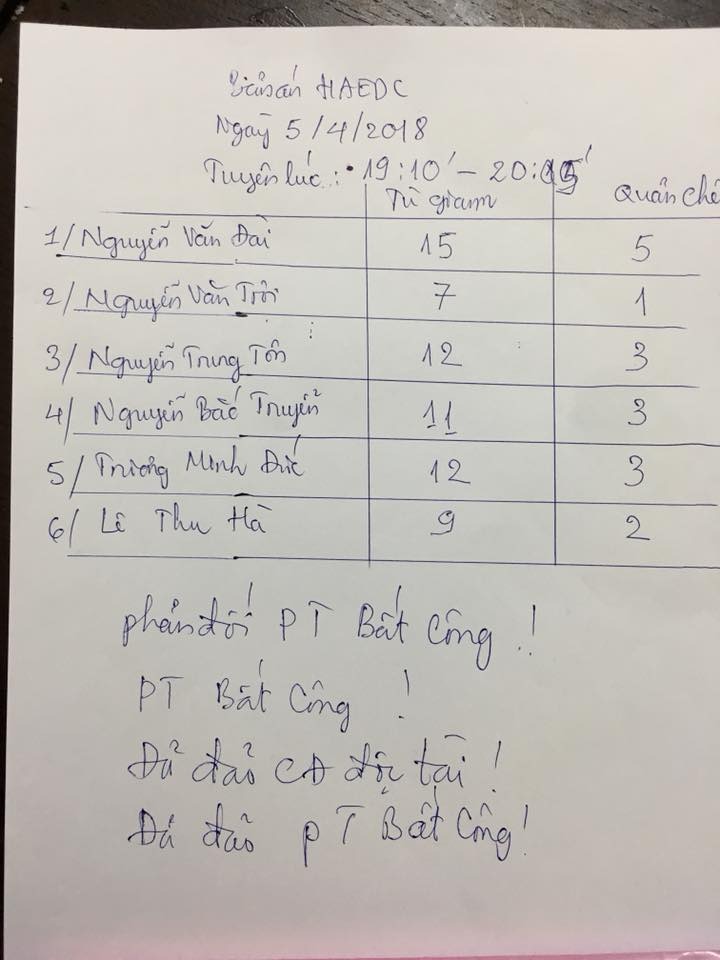 Bản án HAEDC
Ngày 5/4/2018
Tuyên lúc: 19:10' – 20:05'
Tù giam Quản chế
1/ Nguyễn Văn Đài 15 5
2/ Nguyễn Văn Trội 7 1
3/ Nguyễn Trung Tôn 12 3
4/ Nguyễn Bắc Truyển 11 3
5/ Trương Minh Đức 12 3
6/ Lê Thu Hà 9 2
phản đối PT Bất Công !
PT Bất Công !
Đả đảo CĐ độc tài !
Đả đảo PT Bất Công!